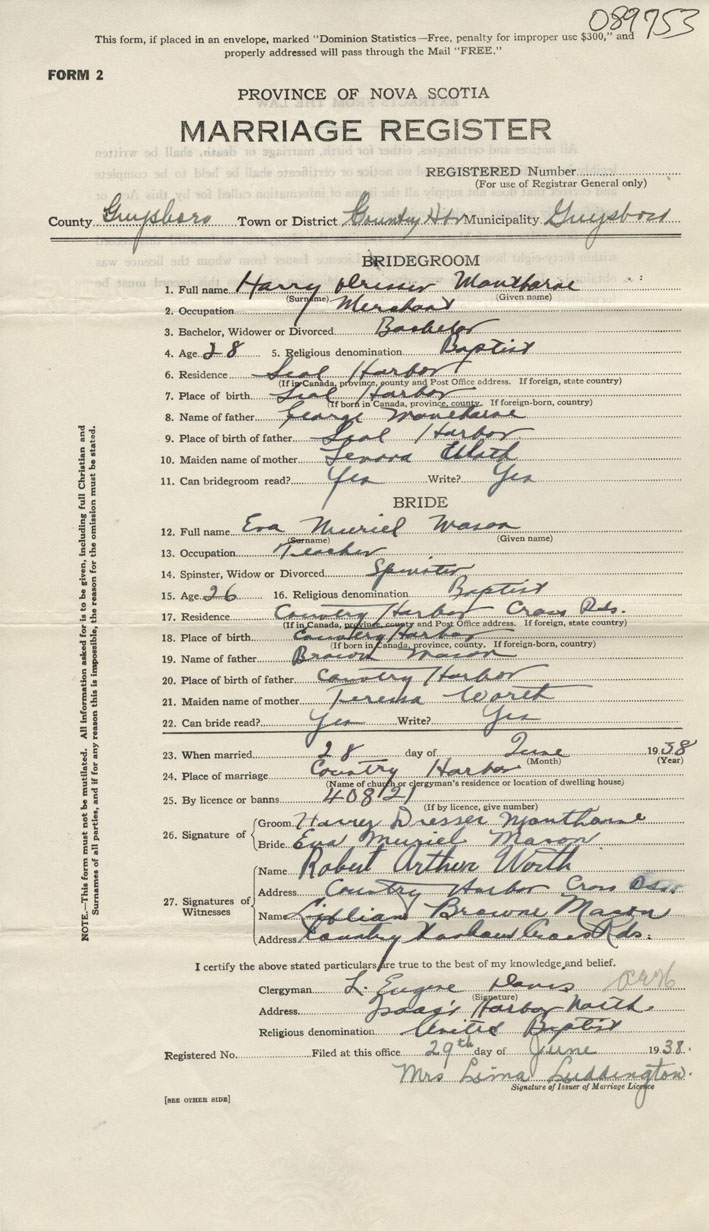 089753
This form, if placed in an envelope, marked "Dominion Statistics—Free, penalty for improper use $300," and
properly addressed will pass through the Mail "FREE."
FORM 2
PROVINCE OF NOVA SCOTIA
MARRIAGE REGISTER
REGISTERED Number
(For use of Registrar General only)
County Guysboro Town or District Country Hbr Municipality Guysboro
BRIDEGROOM
1. Full name Harry Dresser Manthorne
(Surname) (Given name)
2. Occupation Merchant
3. Bachelor, Widower or Divorced Bachelor
4. Age 28 5. Religious denomination Baptist
6. Residence Seal Harbor
(If in Canada, province, county and Post Office address. If foreign, state country)
7. Place of birth Seal Harbor
(If born in Canada, province, county. If foreign-born, country)
8. Name of father George Manthorne
9. Place of birth of father Seal Harbor
10. Maiden name of mother Lenora
11. Can bridegroom read? Yes Write? Yes
BRIDE
12. Full name Eva Muriel Mason
(Surname) (Given name)
13. Occupation Teacher
14. Spinster, Widow or Divorced Spinster
15. Age 26 16. Religious denomination Baptist
17. Residence Country Harbor Cross Rds.
(If in Canada, province, county and Post Office address. If foreign, state country)
18. Place of birth Country Harbor
(If born in Canada, province, county. If foreign-born, country)
19. Name of father Brown Mason
20. Place of birth of father Country Harbor
21. Maiden name of mother Teressa Worth
22. Can bride read? Yes Write? Yes
23. When married 28 day of June 1938
(Month) (Year)
24. Place of marriage Country Harbor
(Name of church or clergyman's residence or location of dwelling house)
25. By licence or banns 40812
(If by licence, give number)
26. Signature of Groom Harry Dresser Manthorne
Bride Eva Muriel Mason
27. Signatures of Witnesses
Name Robert Arthur Worth
Address Country Harbor Cross Rds.
Name Lillian Browne Mason
Address Country Harbour Cross Rds.
I certify the above stated particulars are true to the best of my knowledge and belief.
Clergyman L. Eugene Davis
(Signature)
Address Isaac's Harbor North
Religious denomination United Baptist
Registered No. Filed at this office 29th day of June 1938.
Mrs Lima Luddington.
Signature of Issuer of Marriage Licence
[SEE OTHER SIDE]
NOTE.—This form must not be mutilated. All information asked for is to be given, including full Christian and
Surnames of all parties, and if for any reason this is impossible, the reason for the omission must be stated.